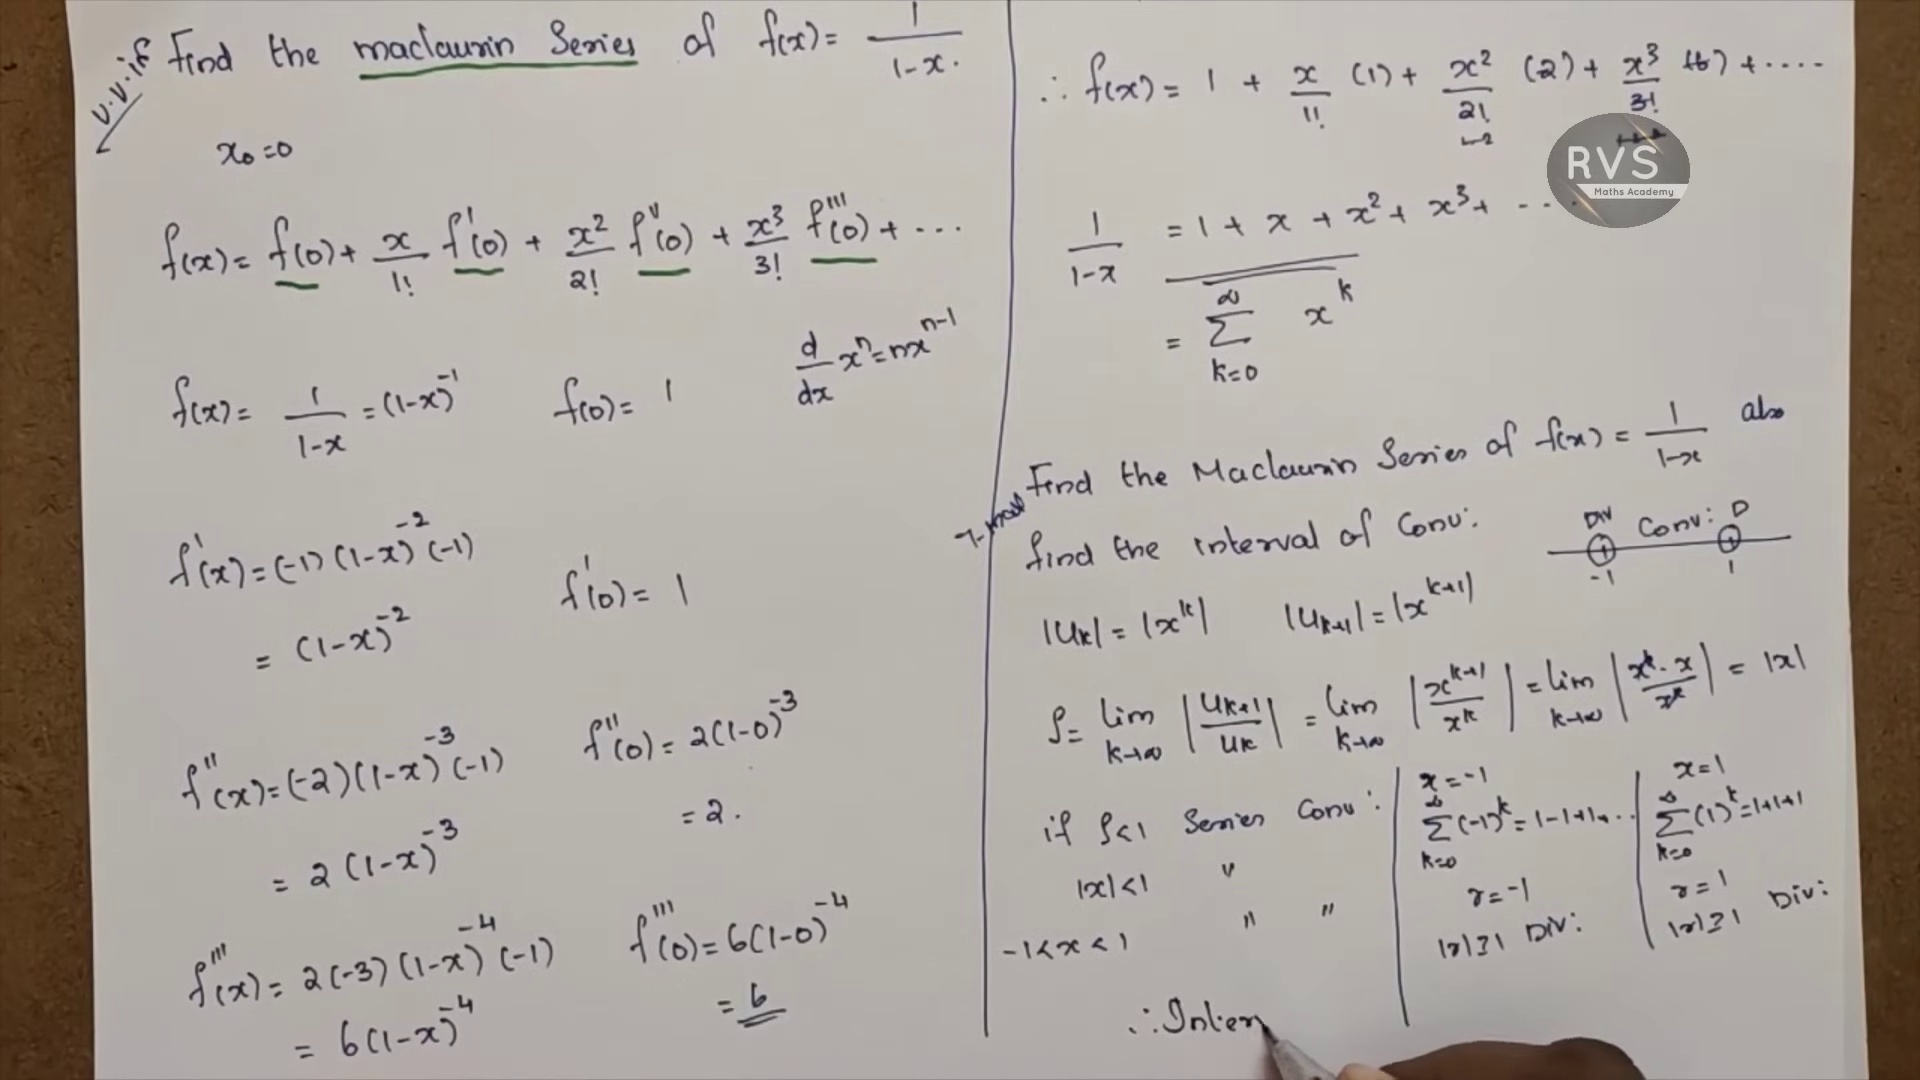 v.v.if Find the maclaurin Series of f(x) = 1/(1-x).
x₀=0
f(x) = f(0) + x/1! f'(0) + x²/2! f''(0) + x³/3! f'''(0) + ...
d/dx xⁿ = nxⁿ⁻¹
f(x) = 1/(1-x) = (1-x)⁻¹ f(0) = 1
f'(x) = (-1)(1-x)⁻²(-1)
= (1-x)⁻² f'(0) = 1
f''(x) = (-2)(1-x)⁻³(-1) f''(0) = 2(1-0)⁻³
= 2(1-x)⁻³ = 2.
f'''(x) = 2(-3)(1-x)⁻⁴(-1) f'''(0) = 6(1-0)⁻⁴
= 6(1-x)⁻⁴ = 6
∴ f(x) = 1 + x/1! (1) + x²/2! (2) + x³/3! (6) + ....
1·2
RVS
Maths Academy
1/(1-x) = 1 + x + x² + x³ + ...
= ∑_{k=0}^{∞} x^k
Find the Maclaurin Series of f(x) = 1/(1-x) also
find the interval of Conv:
Div Conv: D
-1 1
|U_k| = |x^k| |U_{k+1}| = |x^{k+1}|
ρ = lim_{k→∞} |U_{k+1}/U_k| = lim_{k→∞} |x^{k+1}/x^k| = lim_{k→∞} |x^k·x/x^k| = |x|
if ρ<1 Series Conv:
|x|<1 "
-1<x<1 " "
x=-1
∑_{k=0}^{∞} (-1)^k = 1-1+1...
r=-1
|r|≥1 Div:
x=1
∑_{k=0}^{∞} (1)^k = 1+1+1
r=1
|r|≥1 Div:
∴ Inter